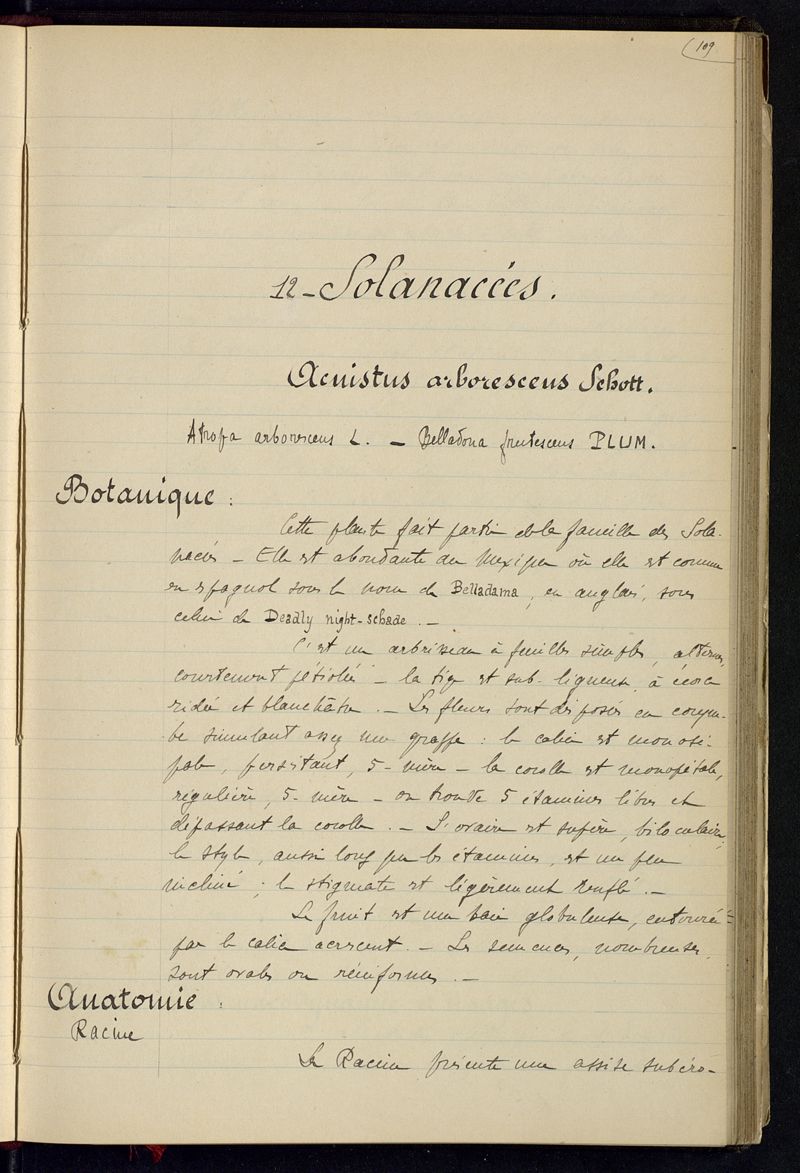 109
12 - Solanacées.
Acnistus arborescens Schott.
Atropa arborescens L. - Belladona frutescens PLUM.
Botanique :
Cette plante fait partie de la famille des Sola-
nacées - Elle est abondante au Mexique où elle est connue
en espagnol sous le nom de Belladama, en anglais, sous
celui de Deadly night-schade. -
C'est un arbrisseau à feuilles simples, alternes,
courtement pétiolées - la tige est sub-ligneuse, à écorce
ridée et blanchâtre. - Les fleurs sont disposées en corym-
be simulant assez une grappe : le calice est monosé-
pale, persistant, 5-mère - la corolle est monopétale,
régulière, 5-mère - on trouve 5 étamines libres et
dépassant la corolle. - L'ovaire est supère, biloculaire,
le style, aussi long que les étamines, est un peu
incliné ; le stigmate est légèrement renflé. -
Le fruit est une baie globuleuse, entourée
par le calice acrescent. - Les semences, nombreuses,
sont ovales ou réniformes. -
Anatomie :
Racine
La Racine présente une assise subéro-